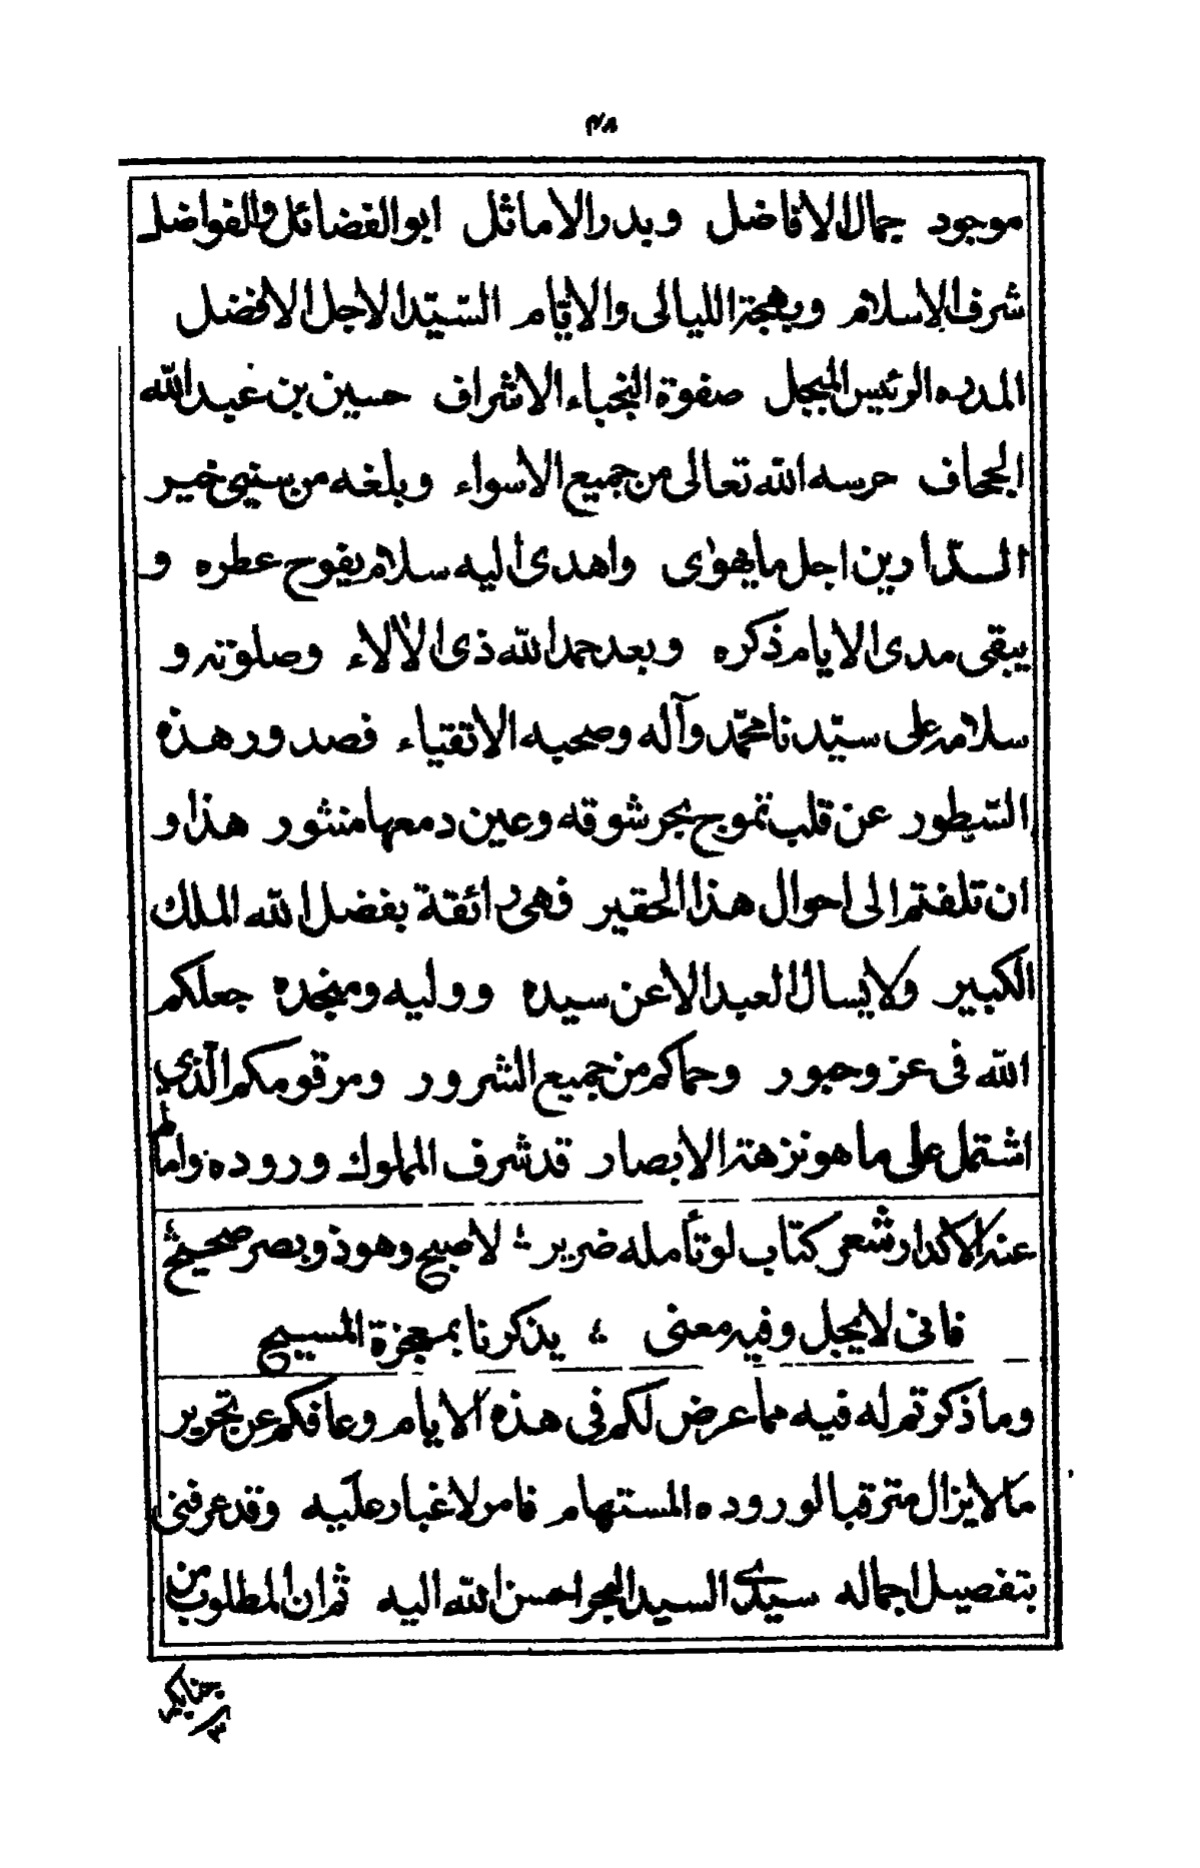 ٣٨
موجود جمال الافاضل وبدر الاماثل ابو الفضائل والفواضل
شرف الاسلام وبهجة الليالى والايّام السّيّد الاجل الافضل
المدره الرئيس المبجل صفوة النجباء الاشراف حسين بن عبد الله
الجحاف حرسه الله تعالى من جميع الاسواء وبلغه من سنيى خير
الدّارين اجل ما يهوى واهدى اليه سلام يفوح عطره و
يبقى مدى الايام ذكره وبعد حمد الله ذى الالاء وصلوته و
سلامه على سيّدنا محمّد وآله وصحبه الاتقياء فصدور هذه
السّطور عن قلب تموج بحر شوقه وعين دمعها منثور هذا و
ان تلفتم الى احوال هذا الحقير فهى رائقة بفضل الله الملك
الكبير ولا يسال العبد الا عن سيده ووليه ومنجده جعلكم
الله فى عز وحبور وحماكم من جميع الشرور ومرقومكم الّذي
اشتمل على ما هو نزهة الابصار قد شرف المملوك وروده واماط
عنه الاكدار شعر كتاب لو تأمله ضرير ؛ لاصبح وهو ذو بصر صحيح ؛
فانى لا يجل وفيه معنى ؛ يذكرنا بمعجزة المسيح
وما ذكرتم له فيه مما عرض لكم فى هذه الايام وعافكم عن تحرير
ما لا يزال مترقبا لوروده المستهام فامر لا غبار عليه وقد عرفنى
بتفصيل اجماله سيدى السيد البحر احسن الله اليه ثم ان المطلوب من
جنابكم